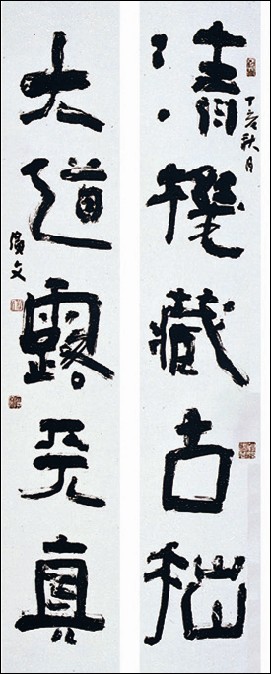 清機藏古拙
丁亥秋月
大道露天真